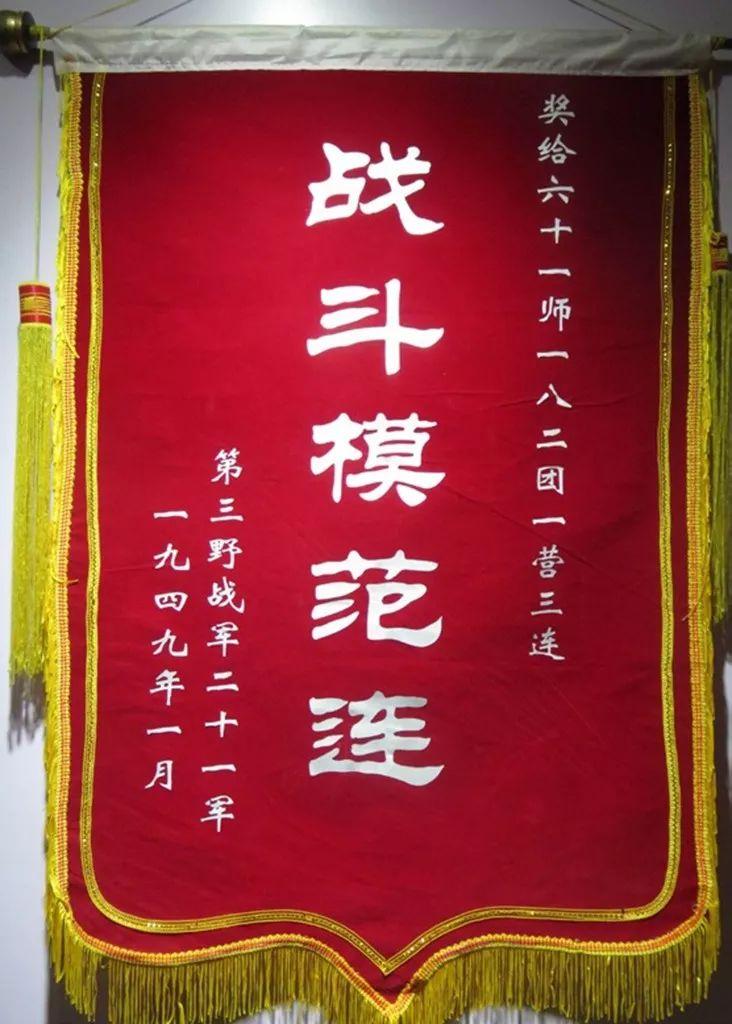 奖给六十一师一八二团一营三连
战斗模范连
第三野战军二十一军
一九四九年一月